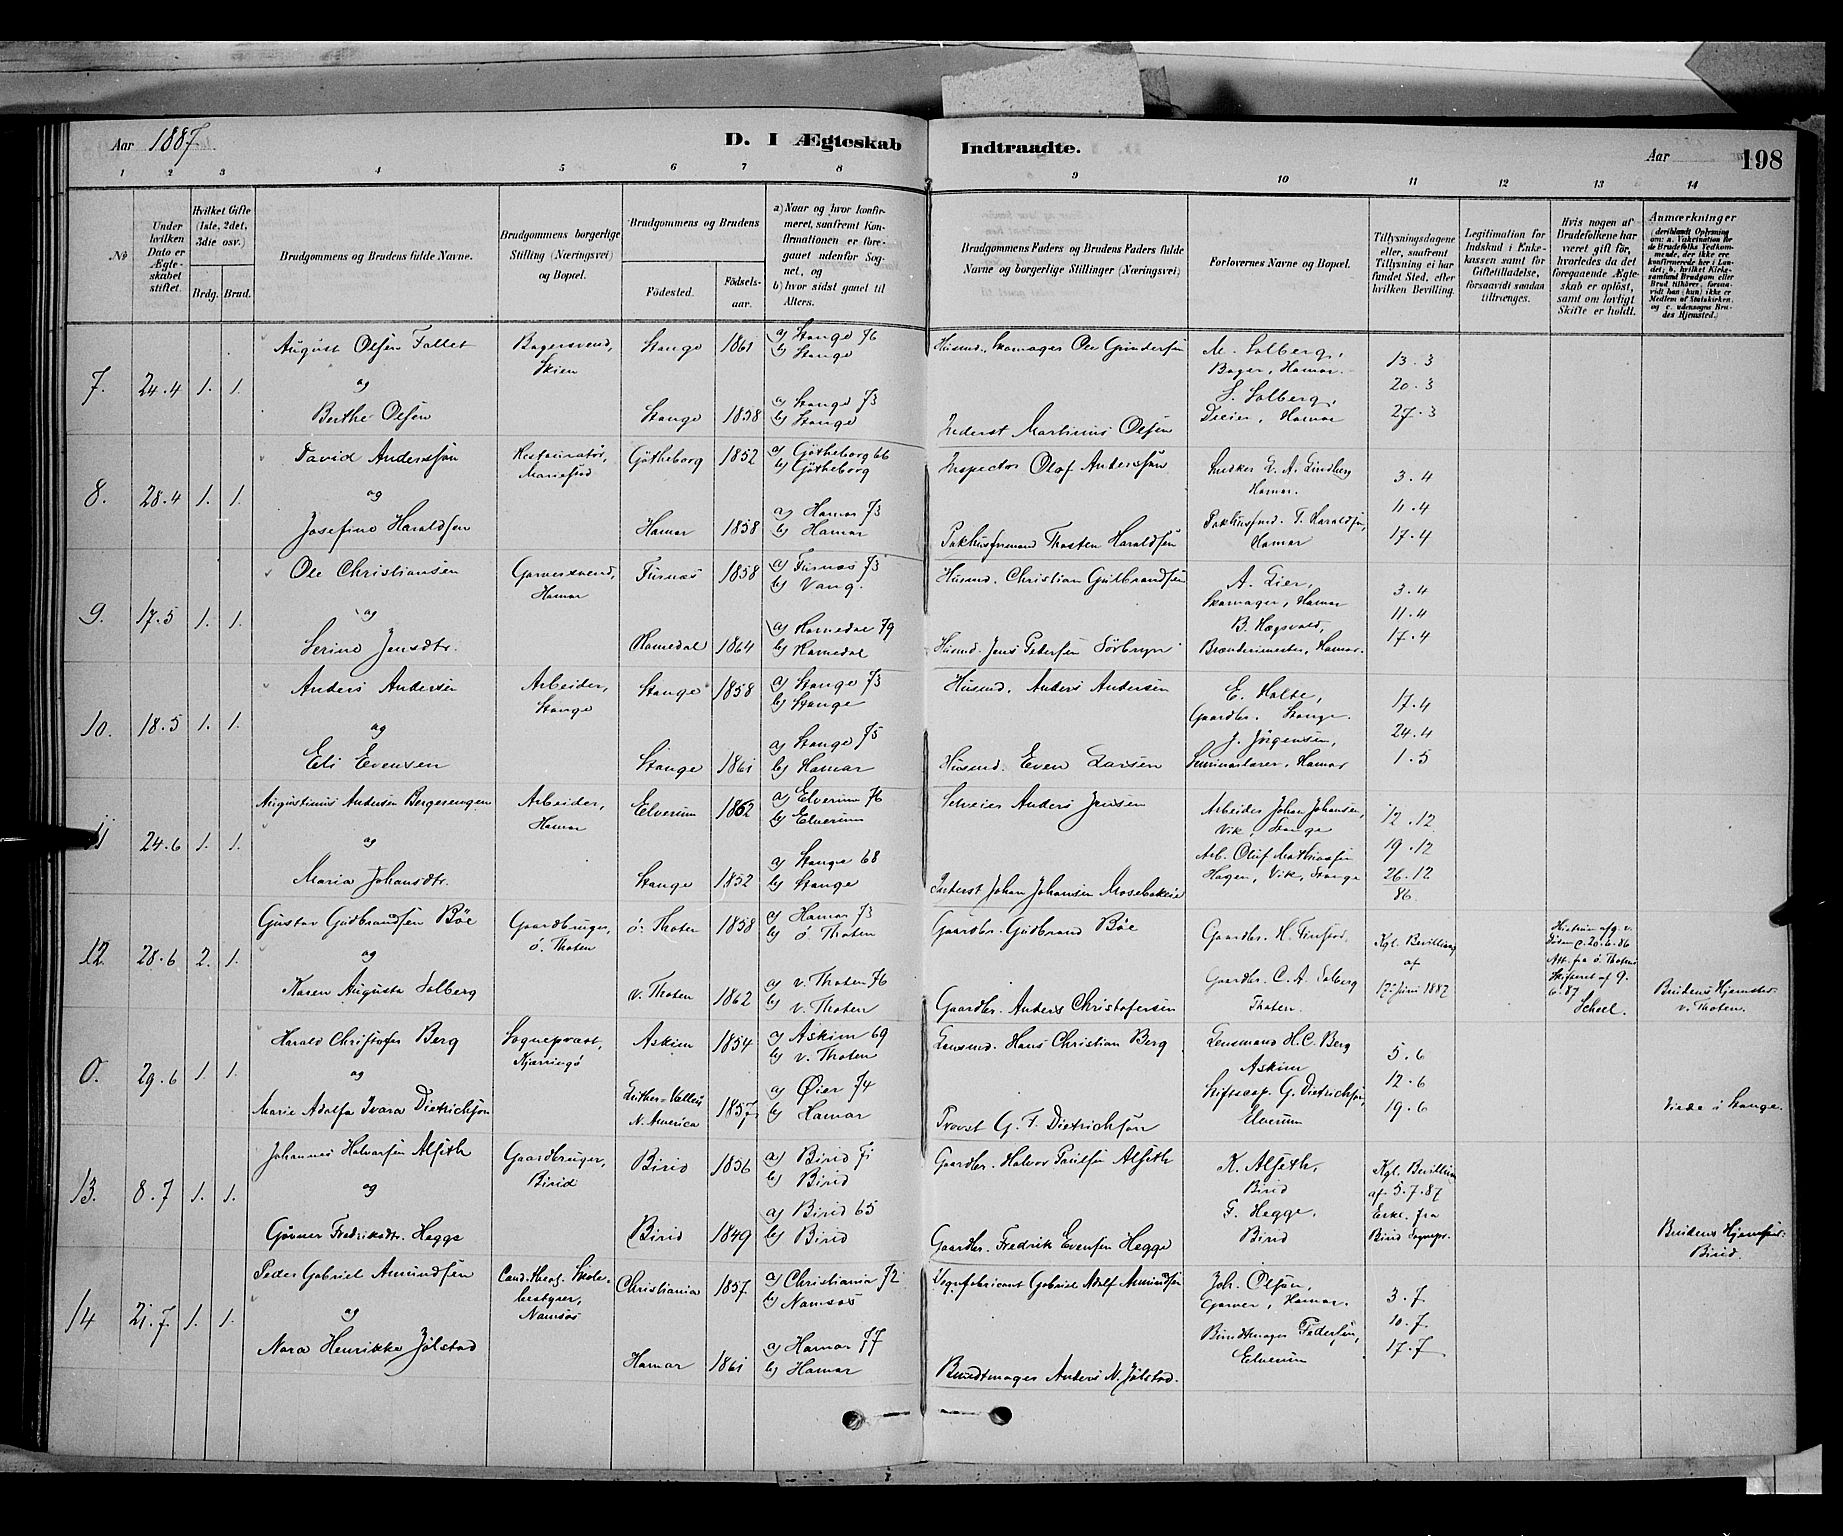 Aar 1887.
D. I Ægteskab Indtraadte.
Aar 198
1 2 3 4 5 6 7 8 9 10 11 12 13 14
No
Under hvilken Dato er Ægteskabet stiftet.
Hvilket Gifte (1ste, 2det, 3die osv.)
Brdg. Brud.
Brudgommens og Brudens fulde Navne.
Brudgommens borgerlige Stilling (Næringsvei) og Bopæl.
Brudgommens og Brudens
Fødested.
Fødselsaar.
a) Naar og hvor konfirmeret, saafremt Konfirmationen er foregaaet udenfor Sognet, og
b) hvor sidst gaaet til Alters.
Brudgommens Faders og Brudens Faders fulde Navne og borgerlige Stillinger (Næringsvei)
Forlovernes Navne og Bopæl.
Tillysningsdagene eller, saafremt Tillysning ei har fundet Sted, efter hvilken Bevilling.
Legitimation for Indskud i Enkekassen samt for Giftetilladelse, forsaavidt saadan tiltrænges.
Hvis nogen af Brudefolkene har været gift før, hvorledes da det foregaaende Ægteskab er opløst, samt om lovligt Skifte er holdt.
Anmærkninger (deriblandt Oplysning om: a. Vakcination for de Brudefolks Vedkommende, der ikke ere konfirmerede her i Landet; b. hvilket Kirkesamfund Brudgom eller Brud tilhører, forsaavidt han (hun) ikke er Medlem af Statskirken, og c. udensogns Brudes Hjemsted.)
7. 24.4 1. 1.
August Olsen Fallet
og
Berthe Olsen
Bagersvend,
Skien
Stange 1861
a) Stange 76
b) Stange
Stange 1858
a) Stange 73
b) Stange
Husmd., Skomager Ole Gundersen
Inderst Martinus Olsen
M. Solberg,
Bager, Hamar.
S. Solberg,
Deeier, Hamar
13.3
20.3
27.3
8. 28.4 1. 1.
David Andersson
og
Josefine Haraldsen
Restauratør,
Götheborg 1852
a) Götheborg 66
b) Götheborg
Hamar 1858
a) Hamar 73
b) Hamar
Inspector Olof Andersson
Pakhusformand Thosten Haraldsen
Snedker L. A. Lindberg
Hamar.
Pakhusfmd. T. Haraldsen,
Hamar
3.4
11.4
17.4
9. 17.5 1. 1.
Ole Christiansen
og
Serine Jensdtr.
Garversvend,
Hamar
Furnæs 1858
a) Furnæs 73
b) Vang.
Romedal 1864
a) Romedal 79
b) Romedal
Husmd. Christian Gulbrandsen
Husmd. Jens Pedersen Sörbryn
A. Lier,
Skomager, Hamar
B. Hægsvold,
Brænderimester, Hamar.
3.4
11.4
17.4
10. 18.5 1. 1.
Anders Andersen
og
Eli Evensen
Arbeider,
Stange
Stange 1858
a) Stange 73
b) Stange
Stange 1861
a) Stange 75
b) Hamar
Husmd. Anders Andersen
Husmd. Even Larsen
E. Holte,
Gaardbr. Stange.
J. Jörgensen,
Seminarlærer, Hamar
17.4
24.4
1.5
11 24.6 1. 1.
Augustinus Andersen Bergerengen
og
Maria Johansdtr.
Arbeider,
Hamar
Elverum 1862
a) Elverum 76
b) Elverum
Stange 1852
a) Stange 68
b) Stange
Selveier Anders Jensen
Inderst Johan Johansen Mosebakke
Arbeider Johan Johansen,
Vik, Stange
Arb. Oluf Mathiassen
Hagen, Vik, Stange
12.12
19.12
26.12
86
12. 28.6 2. 1.
Gustav Gudbrandsen Böe
og
Karen Augusta Solberg
Gaardbruger,
ö. Thoten
ö. Thoten 1858
a) Hamar 73
b) ö. Thoten
v. Thoten 1862
a) v. Thoten 76
b) v. Thoten
Gaardbr. Gudbrand Böe
Gaardbr. Anders Christofersen
Gaardbr. H. Finstad,
Gaardbr. C. A. Solberg
Thoten.
Kgl. Bevilling
af
17. Juni 1887
Att. fra ö. Thotens
Skifteret af 9.
6.87
Scheel.
Brudens Hjemsted
v. Thoten.
0. 29.6 1. 1.
Harald Christofer Berg
og
Marie Adolfa Ivara Dietrichson
Sognepræst,
Kjærringö
Askim 1854
a) Askim 69
b) v. Thoten
Luther-Valley
N. America 1857
a) Øier 74
b) Hamar
Lensmd. Hans Christian Berg
Provst G. F. Dietrichson
Lensmand H. C. Berg
Askim
Stiftscap. G. Dietrichson,
Elverum
5.6
12.6
19.6
Viede i Stange.
13. 8.7 1. 1.
Johannes Halvorsen Alfseth
og
Gunner Fredriksdtr. Hegge
Gaardbruger,
Birid
Birid 1856
a) Birid 71
b) Birid
Birid 1849
a) Birid 65
b) Birid
Gaardbr. Halvor Paulsen Alfseth
Gaardbr. Fredrik Evensen Hegge
K. Alfseth,
Birid
F. Hegge,
Birid
Kgl. Bevilling
af 5.7.87
Erkl. fra
Birid Sognepr.
Brudens Hjemsted
Birid.
14 21.7. 1. 1.
Peder Gabriel Amundsen
og
Nora Henrikke Jölstad
Cand. theol. Skolebestyrer,
Namsos
Christiania 1857
a) Christiania 72
b) Namsos
Hamar 1861
a) Hamar 77
b) Hamar
Vognfabricant Gabriel Adolf Amundsen
Bundtmager Anders N. Jölstad.
Joh. Olsen,
Garver, Hamar.
Bundtmager Pedersen,
Elverum
3.7
10.7
17.7